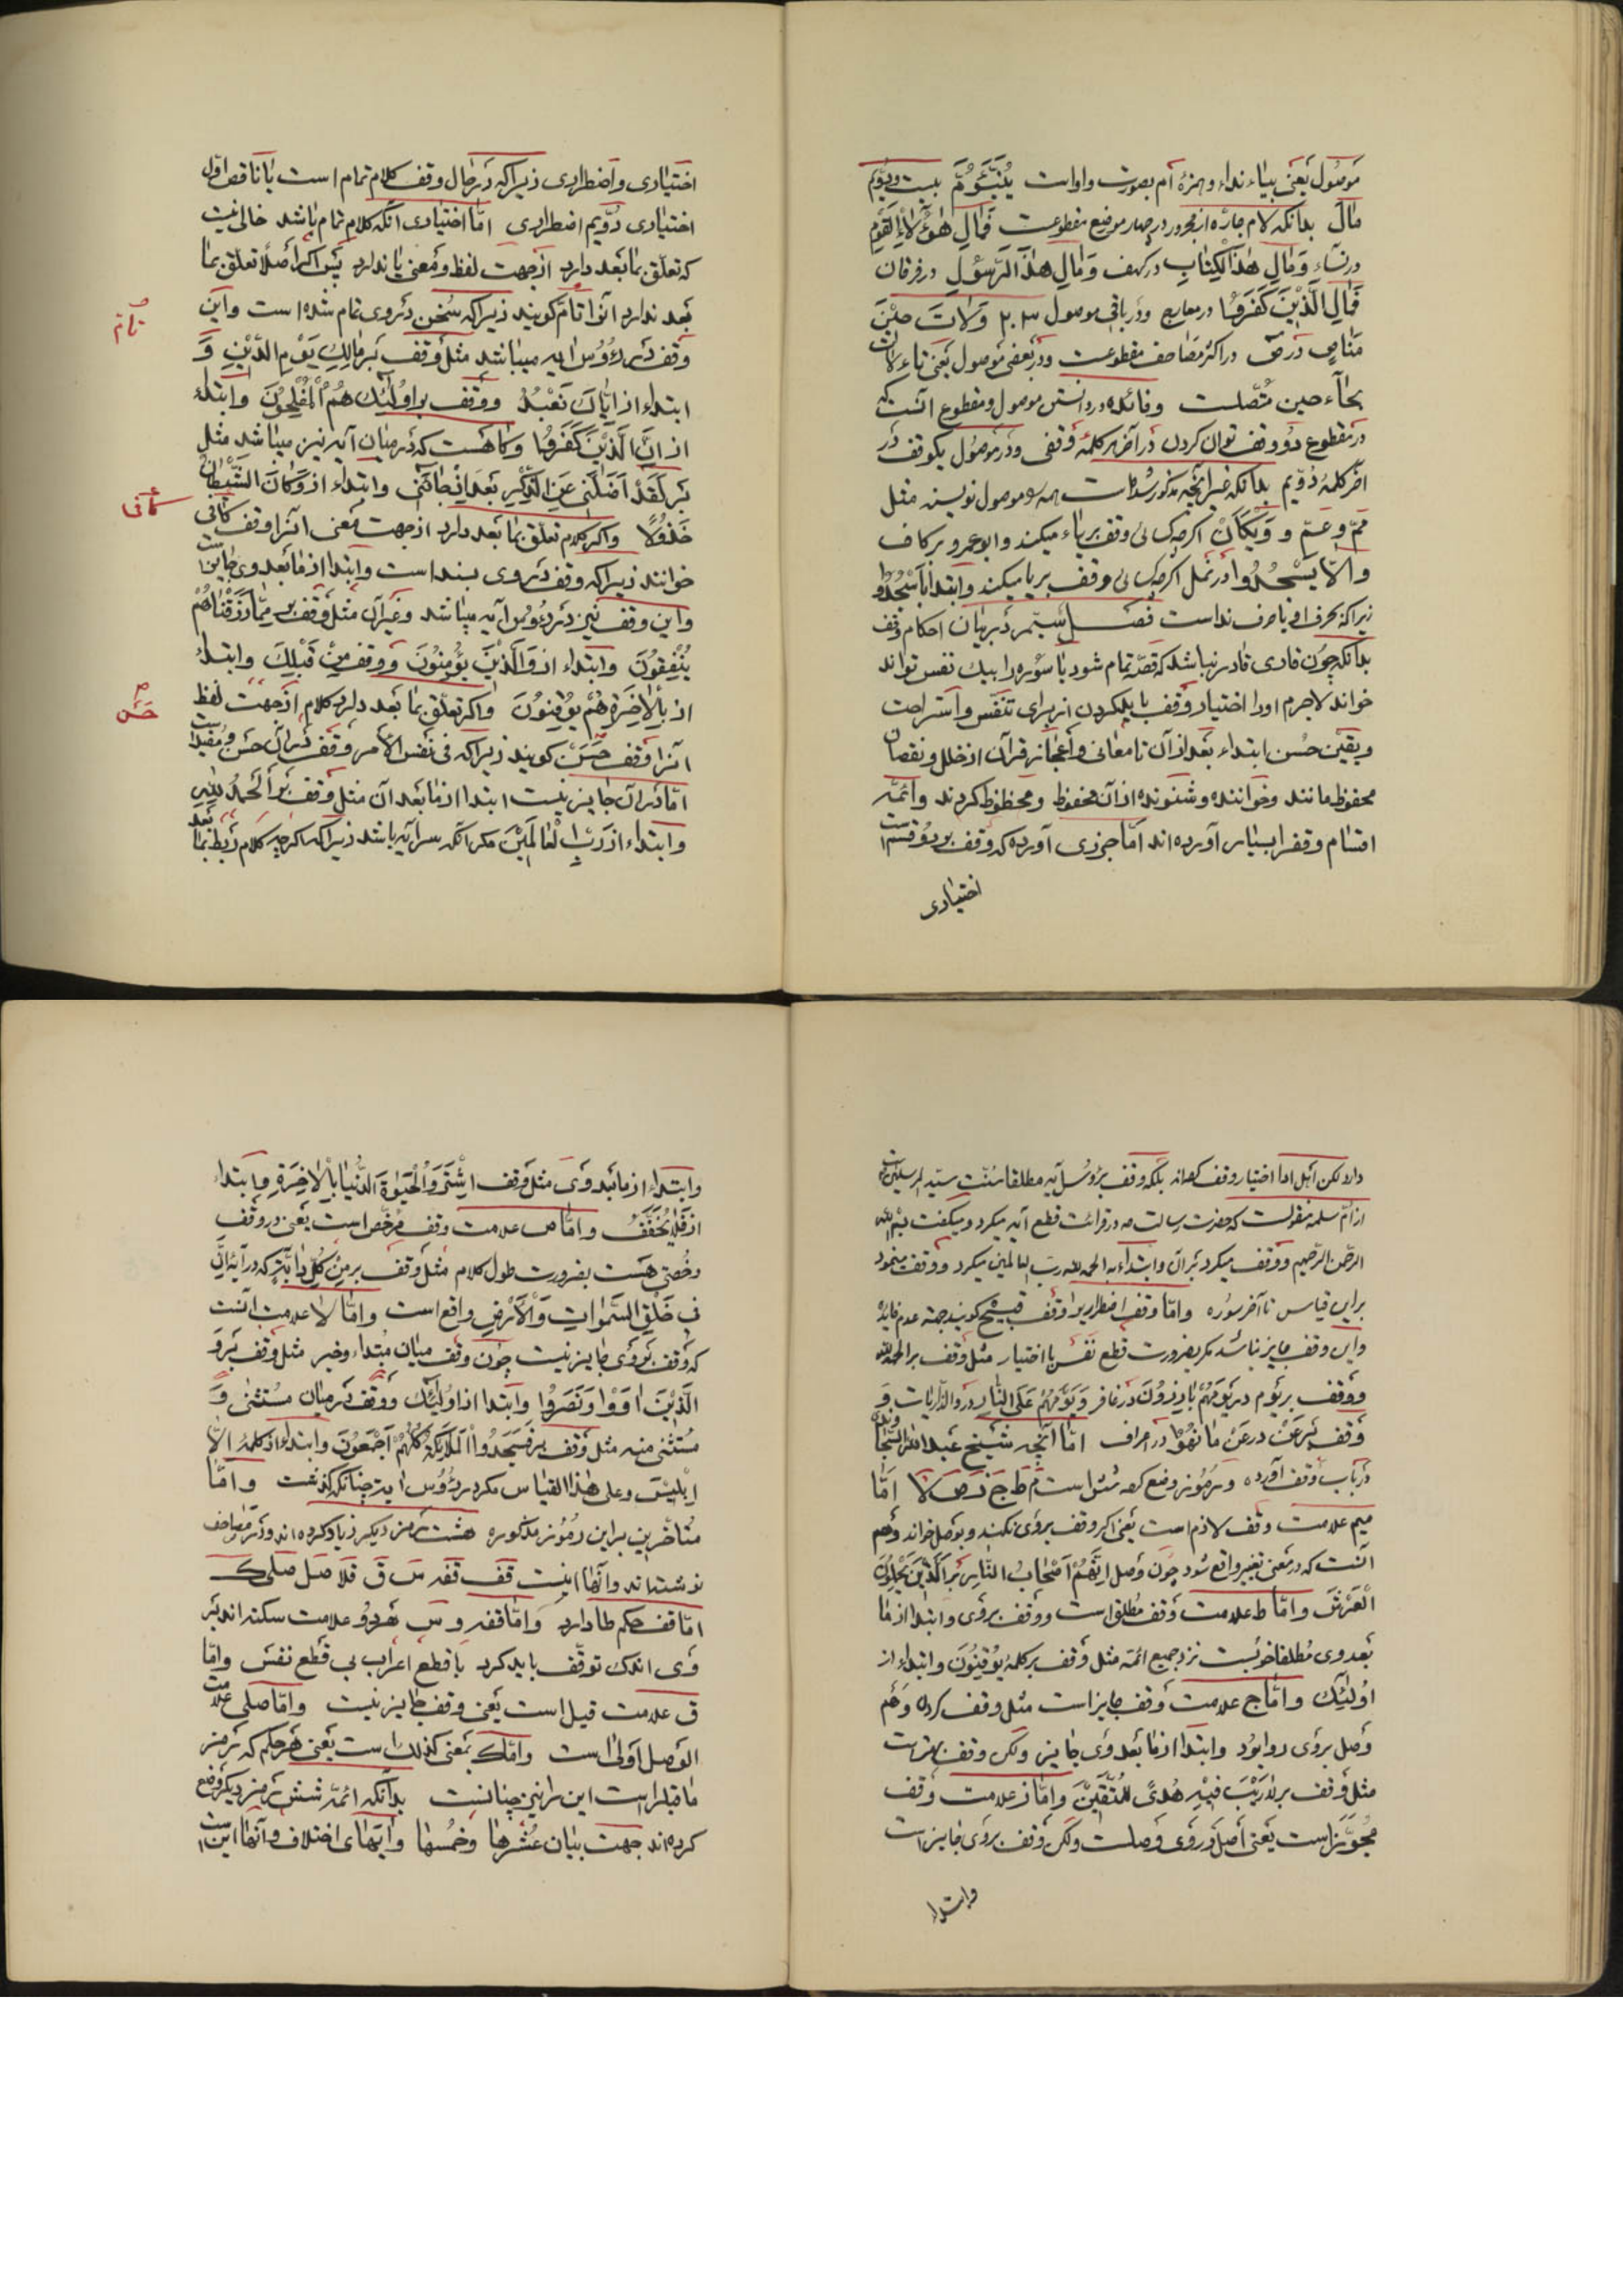 موصول یعنی بیاء نداء و همزهٔ ام بصورت واواست یَبْنَؤُمَّ بیست و دویم
مال بدانکه لام جارّه از مجرور در چهار موضع مقطوعست فَمَالِ هٰؤُلَآءِ الْقَوْمِ
در نساء وَمَالِ هٰذَا الْکِتٰابِ در کهف وَمَالِ هٰذَا الرَّسُوْلِ در فرقان
فَمَالِ الَّذِیْنَ کَفَرُوْا در معارج و در باقی موصول ۲۳ وَلَاتَ حِیْنَ
مَنَاصٍ در ص در اکثر مصاحف مقطوعست و در بعضی موصول یعنی تاء لات
بحاء حین متّصلست و فائده در دانستن موصول و مقطوع آنست که
در مقطوع دو وقف توان کردن در آخر هر کلمه وقفی و در موصول یکوقف در
آخر کلمهٔ دویم بدانکه غیر آنچه مذکور شده است همه را موصول نویسند مثل
مِمّ و عَمّ و وَیْکَاَنَّ اگرچه کسائی وقف بر یاء میکند و ابو عمرو بر کاف
و اَلَّا یَسْجُدُوْا در نمل اگرچه کسائی وقف بر یا میکند و ابتدا باُسْجُدُوْا
زیرا که حرف او با حرف نداست فصل سیّم در بیان احکام وقف
بدانکه چون قاری قادر نباشد که قصّه تمام شود یا سوره را بیک نفس تواند
خواند لاجرم او را اختیار وقف باید کردن از برای تنفّس و استراحت
و یقین حسن ابتداء بعد از آن تا معانی و اعجاز قرآن از خلل و نقصان
محفوظ مانند و خواننده و شنونده از آن محفوظ و محظوظ کردند و ائمّه
اقسام وقف را بسیار آورده‌اند امّا جزری آورده که وقف بر دو قسم است
اختیاری
اختیاری و اضطراری زیرا که در حال وقف کلام تمام است یا ناقص اوّل
اختیاری دُوّیم اضطراری امّا اختیاری آنکه کلام تمام باشد خالی نیست
که تعلّق بما بعد دارد از جهت لفظ و معنی یا ندارد پس اکر اصلاً تعلّق بما
بعد ندارد آنرا تامّ کویند زیرا که سُخن در وی تمام شده است و این
وقف در رءُوس آیه میباشد مثل وقف بر مَالِكِ یَوْمِ الدِّیْنِ وَ
ابتداء از اِیَّاكَ نَعْبُدُ و وقف بر اُولٰئِكَ هُمُ الْمُفْلِحُوْنَ و ابتداء
از اِنَّ الَّذِیْنَ کَفَرُوْا و کاه هست که در میان آیه نیز میباشد مثل
بر لَقَدْ اَضَلَّنِیْ عَنِ الذِّکْرِ بَعْدَ اِذْ جَآئَنِیْ و ابتداء از وَکَانَ الشَّیْطَانُ
خَذُوْلًا و اکر کلام تعلّق بما بعد دارد از جهت معنی آنرا وقف کافی
خوانند زیرا که وقف در وی بسند است و ابتدا از ما بعد وی جایز است
و این وقف نیز در رءُوس آیه میباشد و غیر آن مثل وقف بر مِمَّا رَزَقْنَاهُمْ
یُنْفِقُوْنَ و ابتداء از وَالَّذِیْنَ یُؤْمِنُوْنَ و وقف مِنْ قَبْلِكَ و ابتداء
از بِالْاٰخِرَةِ هُمْ یُوْقِنُوْنَ و اکر تعلّق بما بعد دارد کلام از جهت لفظ
آنرا وقف حَسَنْ کویند زیرا که فی نفس الأمر وقف در آن حسن و مفید است
امّا در آن جایز نیست ابتدا از ما بعد آن مثل وقف بر اَلْحَمْدُ لِلّٰهِ
و ابتداء از رَبِّ الْعَالَمِیْنَ مکر آنکه سر آیه باشد زیرا که اکرچه کلام ربط بما بعد
تامّ
کافی
حَسَن
دارد لکن اهل ادا اختیار وقف کرده‌اند بلکه وقف بر رؤُس آیه مطلقا سنّت سیّد المرسلین است
از امّ سلمه منقولست که حضرت رسالت ص در قرائت قطع آیه میکرد و میکفت بسم الله
الرحمن الرحیم و وقف میکرد بر آن و ابتداء به الحمد لله رب العالمین میکرد و وقف مینمود
بر این قیاس تا آخر سوره و امّا وقف اضطراری را وقف قبیح کویند جهة عدم فایده
و این وقف جایز نباشد مکر بضرورت قطع نفس یا اختیار مثل وقف بر الحمد لله
و وقف بر یوم در یَوْمَهُمْ بَارِزُوْنَ در غافر وَ یَوْمَهُمْ عَلَی النَّارِ در والذّاریات و
وقف بر عَنْ در عَنْ مَا نُهُوْا در اعراف امّا آنچه شیخ عبد الله السّجاوندی
در باب وقف آورده و رموز وضع کرده شش است م ط ج ز ص لا امّا
میم علامت وقف لازم است یعنی اکر وقف بر وی نکنند و بوصل خوانند وهم
آنست که در معنی تغییر واقع شود چون وصل اَنَّهُمْ اَصْحَابُ النَّارِ بر اَلَّذِیْنَ یَحْمِلُوْنَ
الْعَرْشَ و امّا ط علامت وقف مطلق است و وقف بر وی و ابتدا از ما
بعد وی مطلقا خوبست نزد جمیع ائمّه مثل وقف بر کلمهٔ یُوْقِنُوْنَ و ابتداء از
اُولٰئِكَ و امّا ج علامت وقف جایز است مثل وقف کردن و هم
وصل بر وی روا بود و ابتدا از ما بعد وی جایز ولکن وقف بهتر است
مثل وقف بر لَارَیْبَ فِیْهِ هُدًی لِلْمُتَّقِیْنَ و امّا ز علامت وقف
مجوّز است یعنی اصل در وی وصلست ولکن وقف بر وی جایز است
و ابتدا
و ابتداء از ما بعد وی مثل وقف اشْتَرَوُا الْحَیٰوةَ الدُّنْیَا بِالْاٰخِرَةِ و ابتداء
از فَلَا یُخَفَّفُ و امّا ص علامت وقف مرخّص است یعنی در وقف
رخصتی هست بضرورت طول کلام مثل وقف بر مِنْ کُلِّ دَابَّةٍ که در آیهٔ اِنَّ
فِیْ خَلْقِ السَّمٰوَاتِ وَ الْاَرْضِ واقع است و امّا لا علامت آنست
که وقف بر وی جایز نیست چون وقف میان مبتداء و خبر مثل وقف بر وَ
الَّذِیْنَ اٰوَوْا وَ نَصَرُوْا و ابتدا از اُولٰئِكَ و وقف در میان مستثنی و
مستثنی منه مثل وقف بر فَسَجَدُوا الْمَلٰئِکَةُ کُلُّهُمْ اَجْمَعُوْنَ و ابتداء از کلمهٔ اِلَّا
اِبْلِیْسَ و علی هٰذا القیاس مکر در رءُوس آیه چنانکه گذشت و امّا
متأخّرین بر این رموز مذکوره هشت رمز دیکر زیاد کرده‌اند و در مصاحف
نوشته‌اند و آنها اینست قف قفه س ق قلا صل صلی ك
امّا قف حکم طا دارد و امّا قفه و س هر دو علامت سکته‌اند بر
وی اندك توقّف باید کرد با قطع اعراب بی قطع نفس و امّا
ق علامت قیل است یعنی وقف جایز نیست و امّا صلی علامت
الوصل اولی است و امّا ك بمعنی کذلك است یعنی هر حکم که رمز
ما قبل راست این را نیز چنانست بدانکه ائمّه شش رمز دیکر وضع
کرده‌اند جهت بیان عشرها و خمسها و آیتهای اختلاف و آنها اینست